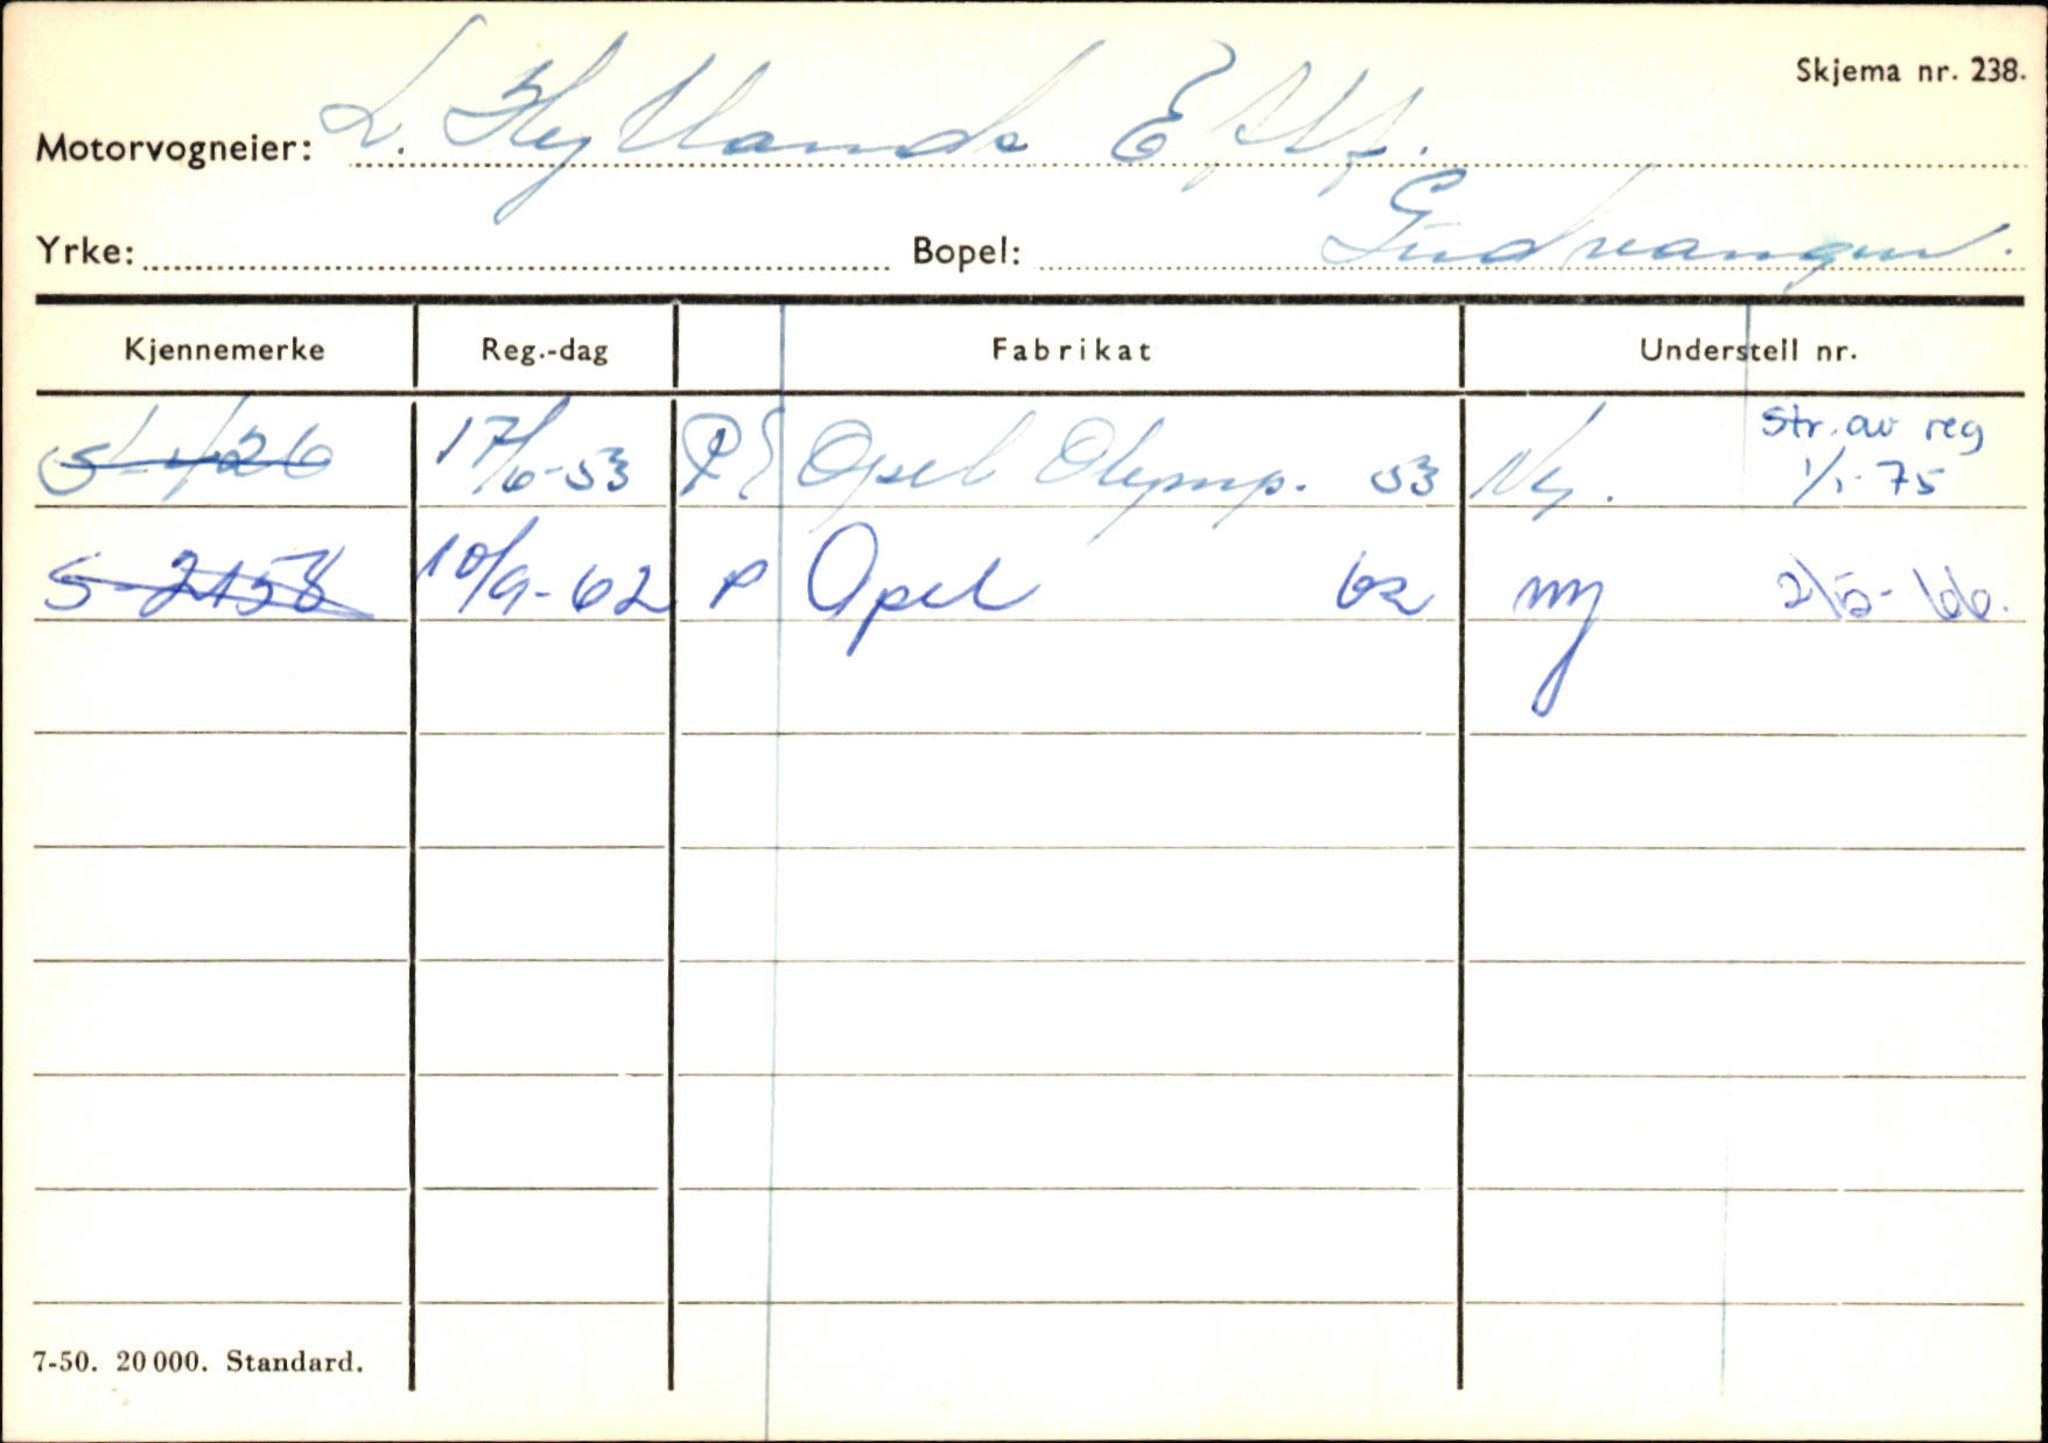 Skjema nr. 238.
Motorvogneier: L. Hyllands Eftf.
Yrke: Bopel: Gudvangen.
Kjennemerke Reg.-dag Fabrikat Understell nr.
17/6-53 P Opel Olymp. 53 Ny. Str. av reg 1/1-75
S-2158 10/9-62 P Opel 62 ny 2/5-66.
7-50. 20 000. Standard.